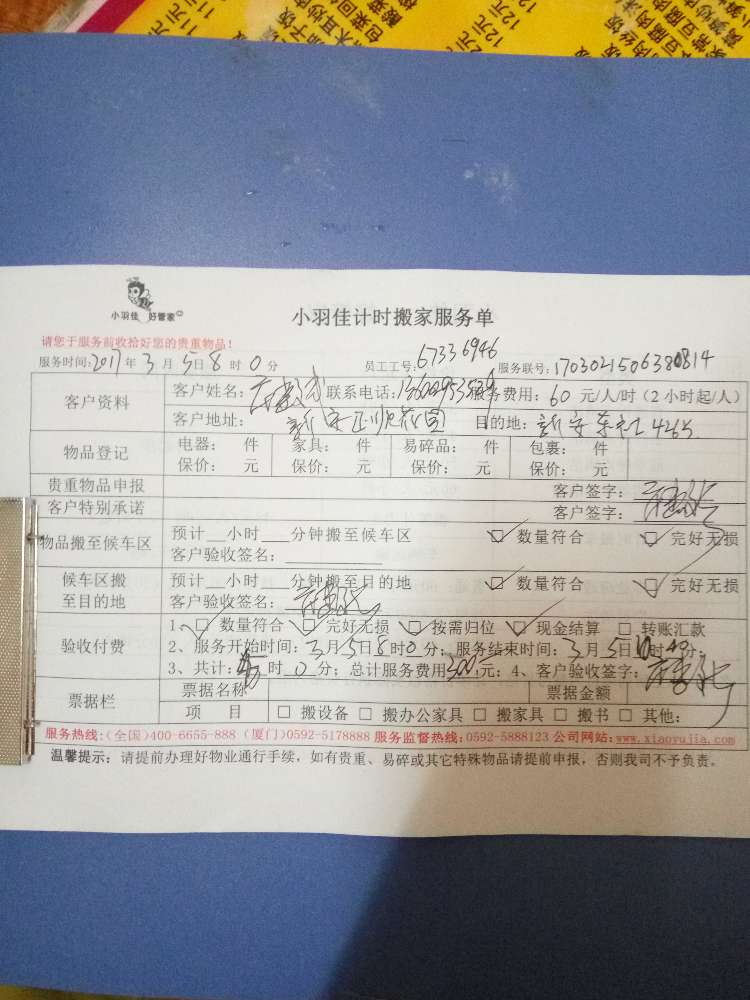 12元 12元 12元 12元
小羽佳 好管家
小羽佳计时搬家服务单
请您于服务前收拾好您的贵重物品！
服务时间：2017年3月5日8时0分 员工工号：67336946 服务联号：1703021506380814
客户资料 客户姓名： 联系电话： 服务费用：60元/人/时（2小时起/人）
客户地址： 目的地：
物品登记 电器： 件 家具： 件 易碎品： 件 包裹： 件
保价： 元 保价： 元 保价： 元 保价： 元
贵重物品申报 客户签字：
客户特别承诺 客户签字：
物品搬至候车区 预计__小时___分钟搬至候车区 □ 数量符合 □ 完好无损
客户验收签名：
候车区搬至目的地 预计__小时___分钟搬至目的地 □ 数量符合 □ 完好无损
客户验收签名：
验收付费 1、□ 数量符合 □ 完好无损 □ 按需归位 □ 现金结算 □ 转账汇款
2、服务开始时间：3月5日8时0分；服务结束时间：3月5日10时40分；
3、共计： 时0分；总计服务费用300元；4、客户验收签字：
票据栏 票据名称 票据金额
项 目 □ 搬设备 □ 搬办公家具 □ 搬家具 □ 搬书 □ 其他：
服务热线：(全国)400-6655-888 (厦门)0592-5178888 服务监督热线：0592-5888123 公司网站：www.xiaoyujia.com
温馨提示：请提前办理好物业通行手续，如有贵重、易碎或其它特殊物品请提前申报，否则我司不予负责。